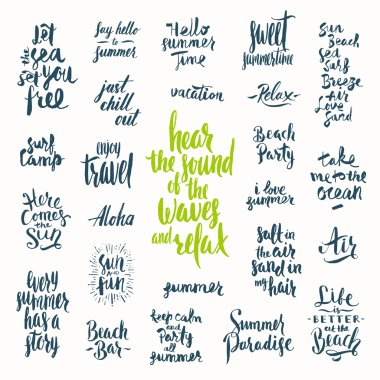 Let
the
sea
set you
free
Say hello
to
summer
Hello
summer
Time
sweet
summertime
Sun
Beach
Sea
Surf
Breeze
Air
Love
Sand
just
chill
out
vacation
Relax
hear
the sound
of the
waves
and relax
Surf
Camp
enjoy
travel
Beach
Party
take
me to the
ocean
Here
Comes
the
Sun
Aloha
i love
summer
sun
fun
salt in
the air
sand in
my hair
Air
every
summer
has a
story
summer
Beach
Bar
keep calm
and
Party
all
summer
Summer
Paradise
Life
is
BETTER
at the
Beach